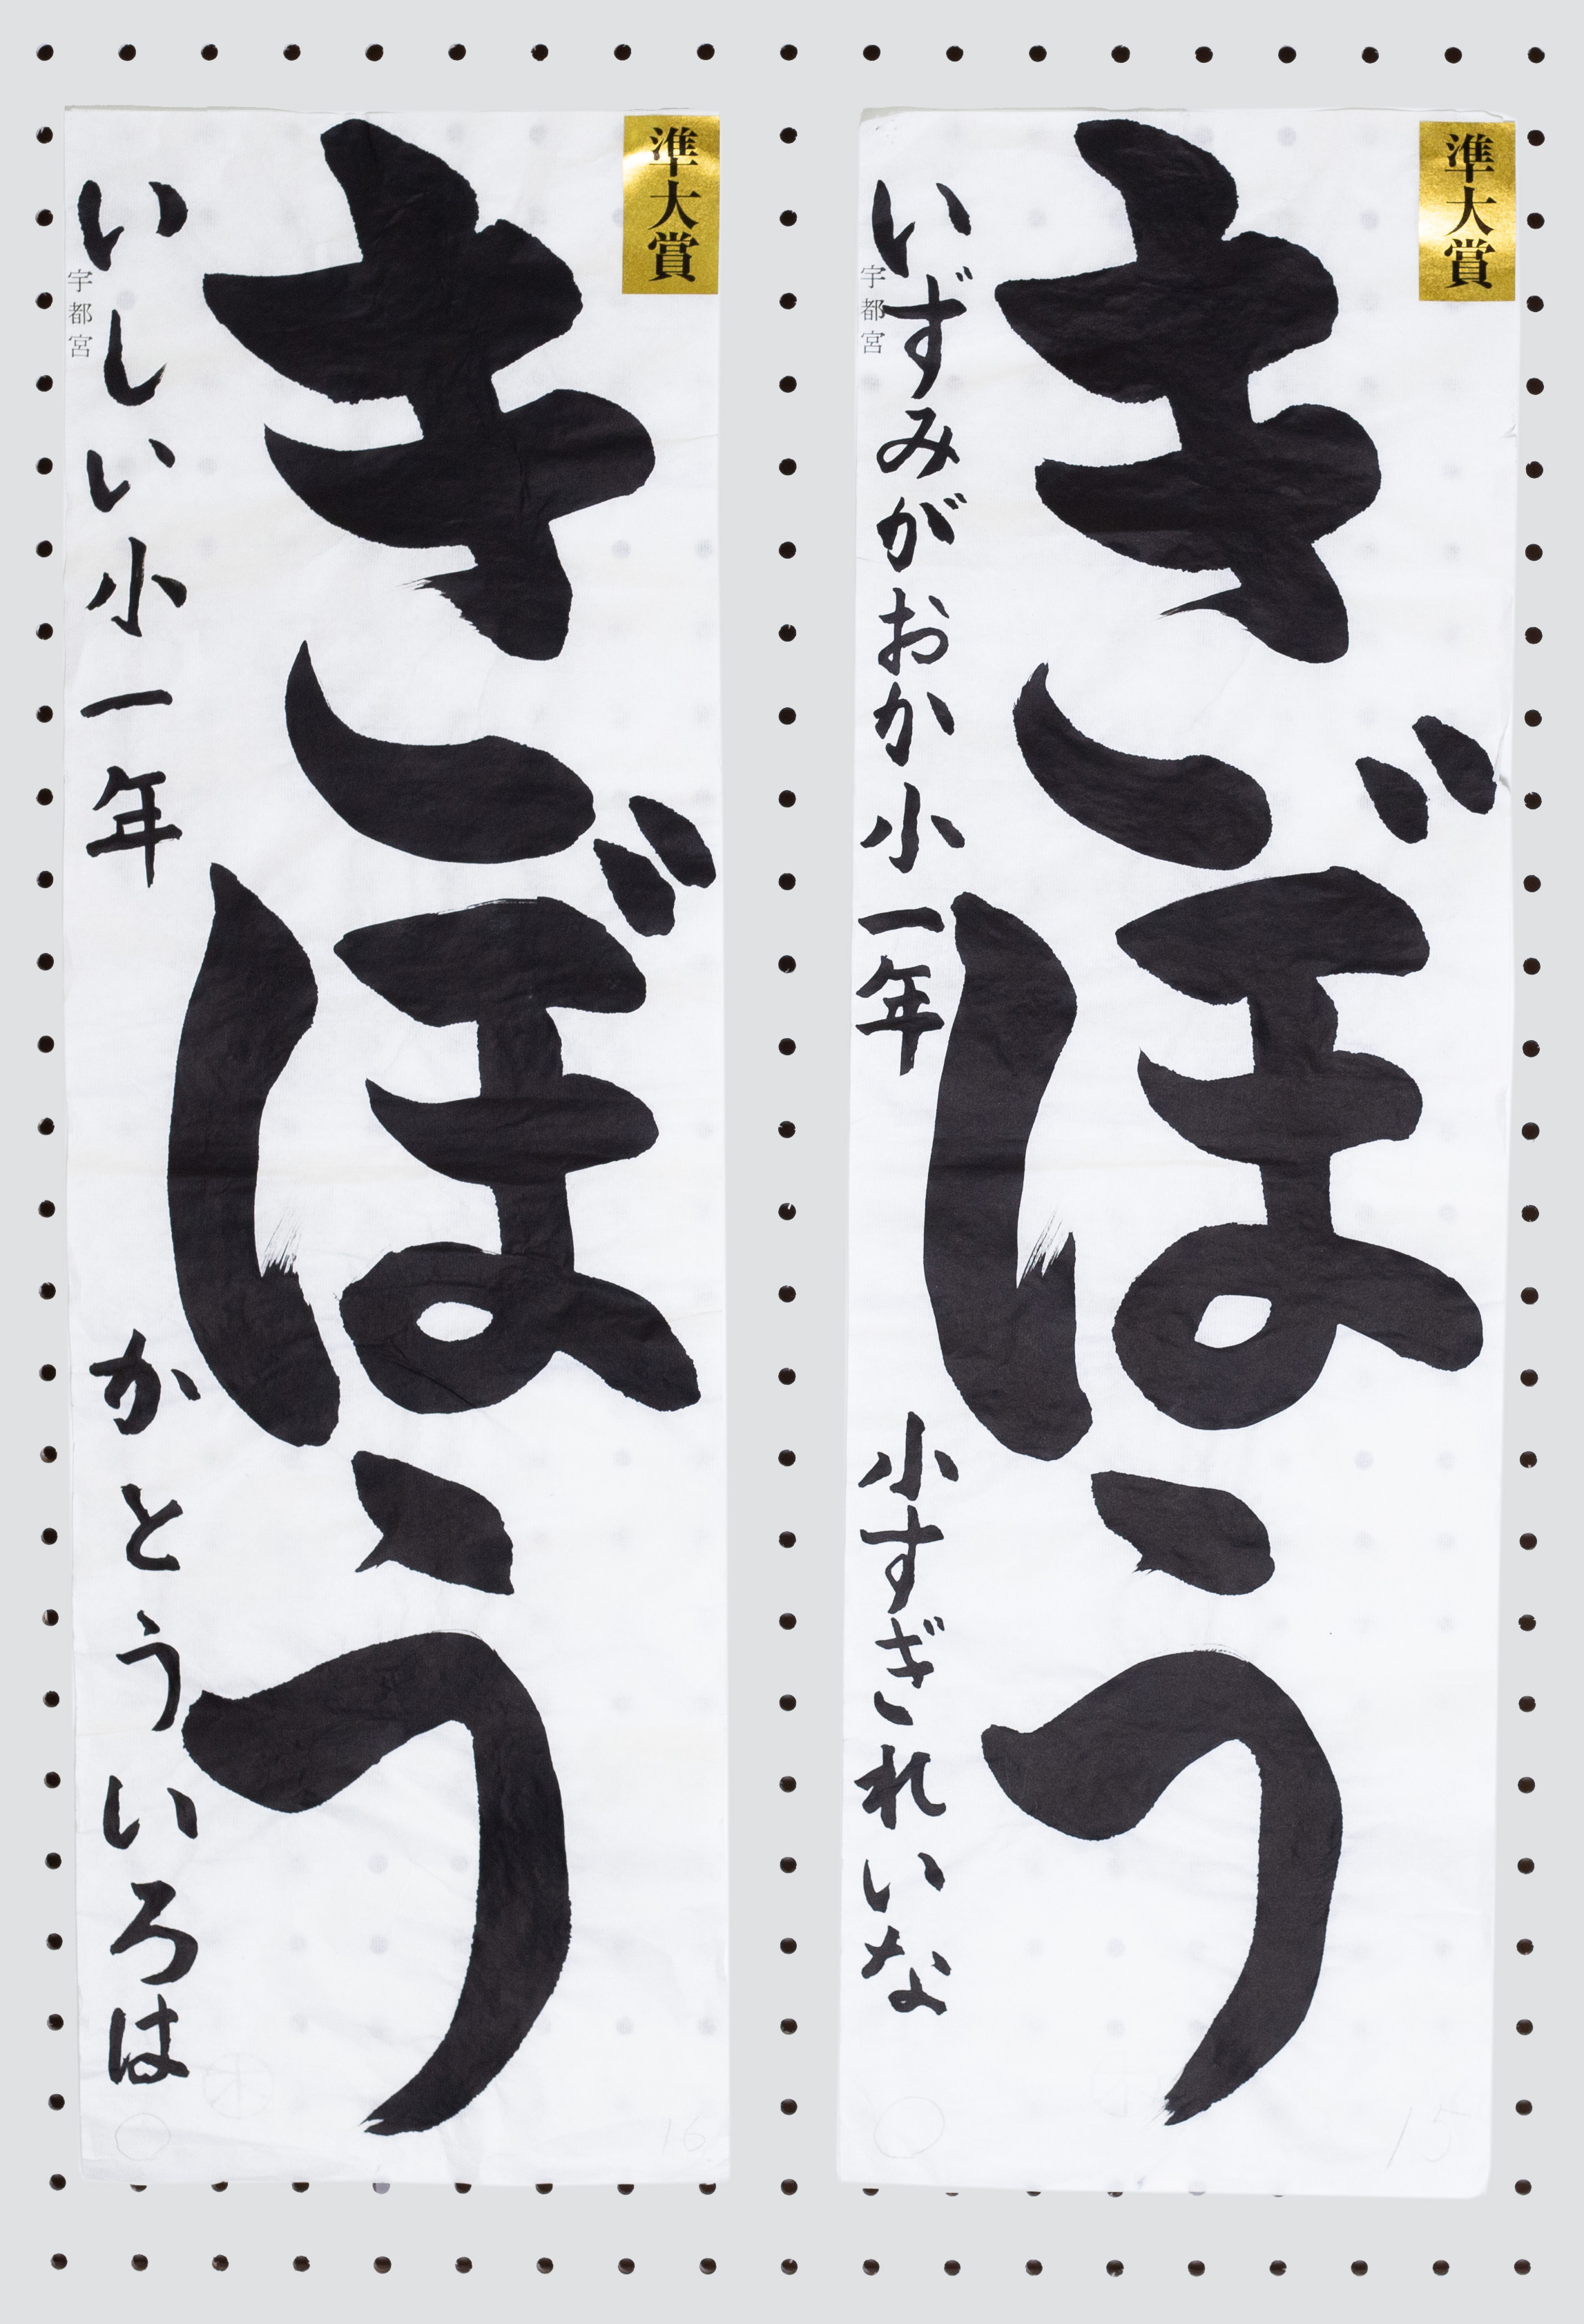 準大賞
きぼう
いずみがおか小一年 小すぎれいな
宇都宮
15
準大賞
きぼう
いしい小一年 かとういろは
宇都宮
16